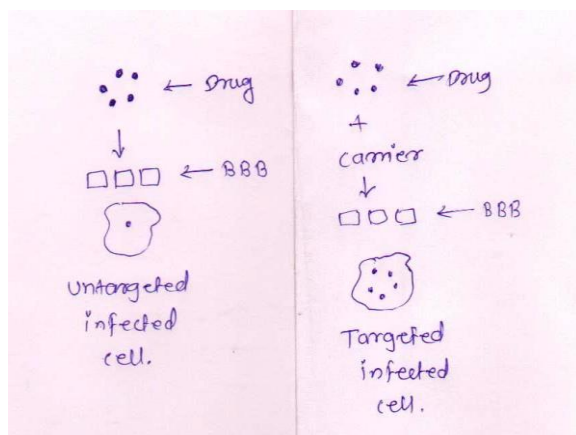 Drug
BBB
Untargeted
infected
cell.
Drug
+
carrier
BBB
Targeted
infected
cell.